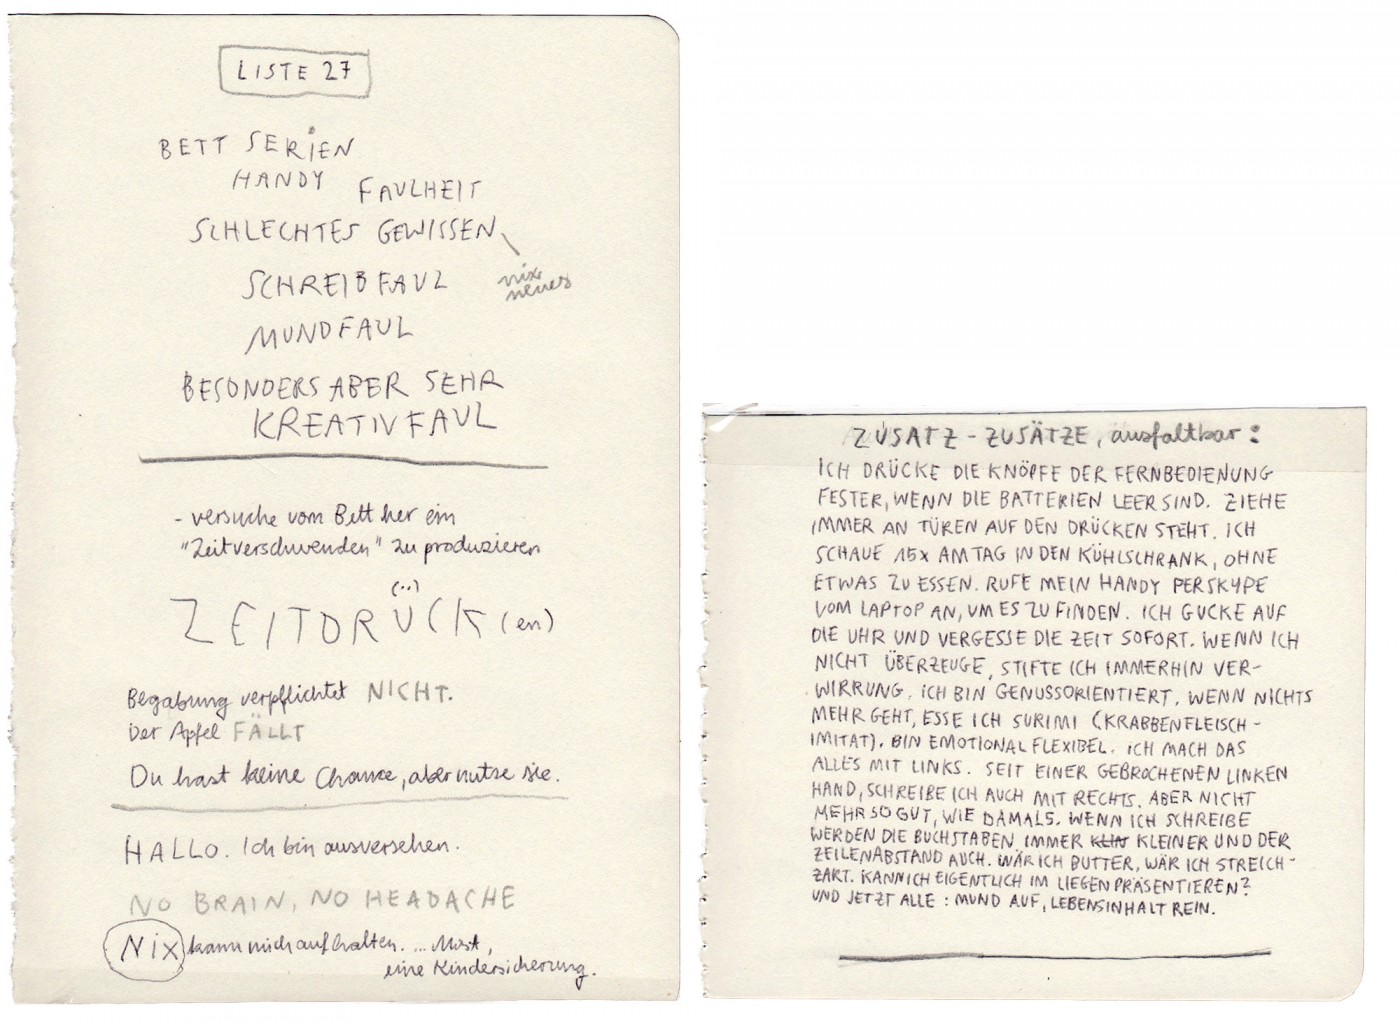 LISTE 27
BETT SERIEN
HANDY FAULHEIT
SCHLECHTES GEWISSEN
nix
neues
SCHREIBFAUL
MUNDFAUL
BESONDERS ABER SEHR
KREATIVFAUL
- versuche vom Bett her ein
"Zeitverschwenden" zu produzieren
(..)
ZEITDRÜCK (en)
Begabung verpflichtet NICHT.
Der Apfel FÄLLT
Du hast keine Chance, aber nutze sie.
HALLO. Ich bin ausversehen.
NO BRAIN, NO HEADACHE
Nix kann mich aufhalten. ... Mist,
eine Kindersicherung.
ZUSATZ-ZUSÄTZE, ausfaltbar:
ICH DRÜCKE DIE KNÖPFE DER FERNBEDIENUNG
FESTER, WENN DIE BATTERIEN LEER SIND. ZIEHE
IMMER AN TÜREN AUF DEN DRÜCKEN STEHT. ICH
SCHAUE 15x AM TAG IN DEN KÜHLSCHRANK, OHNE
ETWAS ZU ESSEN. RUFE MEIN HANDY PER SKYPE
VOM LAPTOP AN, UM ES ZU FINDEN. ICH GUCKE AUF
DIE UHR UND VERGESSE DIE ZEIT SOFORT. WENN ICH
NICHT ÜBERZEUGE, STIFTE ICH IMMERHIN VER-
WIRRUNG. ICH BIN GENUSSORIENTIERT. WENN NICHTS
MEHR GEHT, ESSE ICH SURIMI (KRABBENFLEISCH-
IMITAT). BIN EMOTIONAL FLEXIBEL. ICH MACH DAS
ALLES MIT LINKS. SEIT EINER GEBROCHENEN LINKEN
HAND, SCHREIBE ICH AUCH MIT RECHTS. ABER NICHT
MEHR SO GUT, WIE DAMALS. WENN ICH SCHREIBE
WERDEN DIE BUCHSTABEN IMMER KLEINER UND DER
ZEILENABSTAND AUCH. WÄR ICH BUTTER, WÄR ICH STREICH-
ZART. KANN ICH EIGENTLICH IM LIEGEN PRÄSENTIEREN?
UND JETZT ALLE: MUND AUF, LEBENSINHALT REIN.